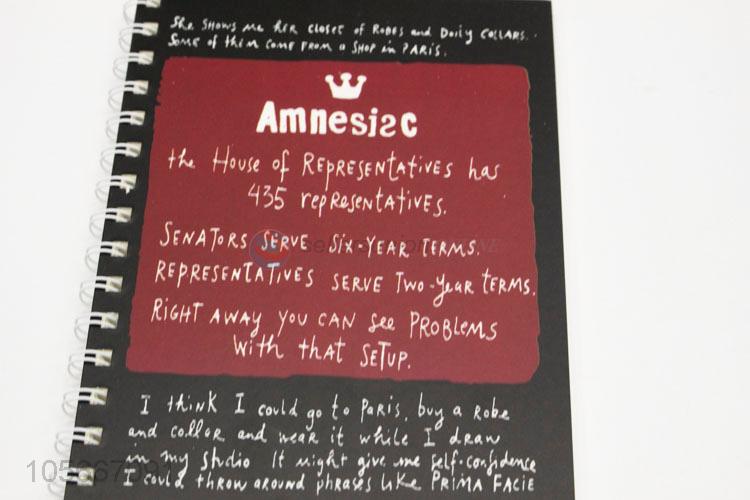 She SHOWS me her closet of Robes and Doily COLLARS.
Some of them come from a SHOP in PARIS.
Amnesisc
the House of REPRESENTATIVES has
435 representatives.
SENATORS SERVE SIX-YEAR TERMS.
REPRESENTATIVES SERVE TWO-YEAR TERMS.
RIGHT AWAY you CAN see PROBLEMS
with that SETUP.
I think I could go to Paris, buy a Robe
and collar and wear it while I draw
in my studio It might give me self-confidence
I could throw around phrases like PRIMA FACIE